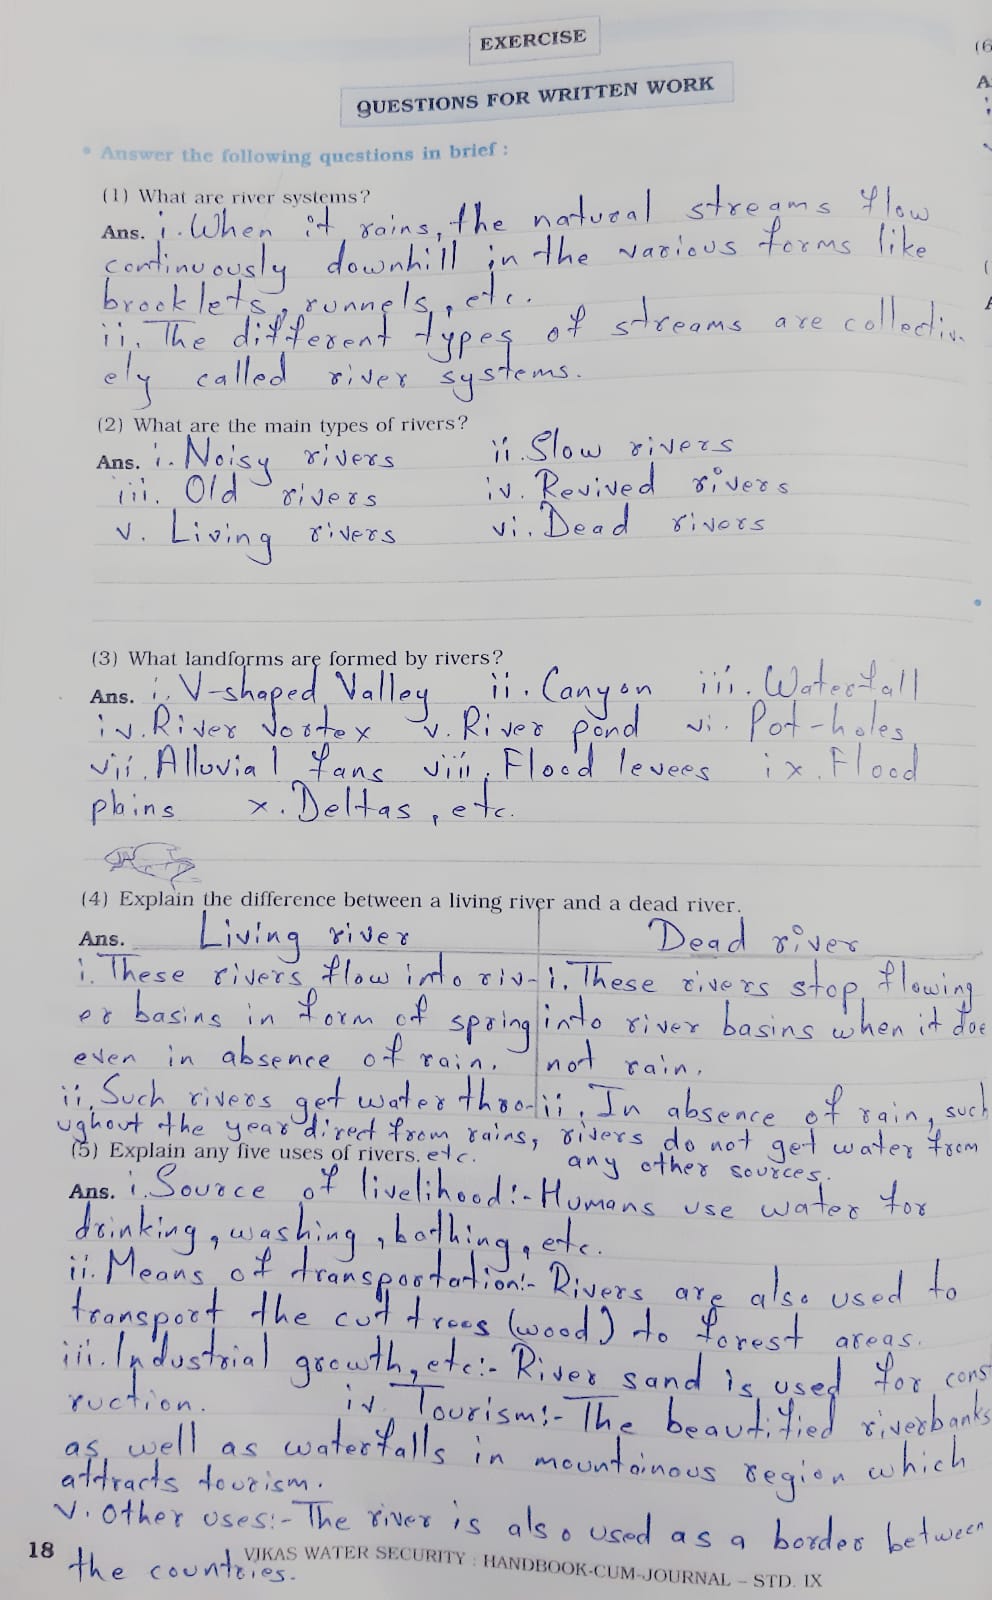 EXERCISE
QUESTIONS FOR WRITTEN WORK
• Answer the following questions in brief :
(1) What are river systems?
Ans. i. When it rains, the natural streams flow
continuously downhill in the various forms like
brooklets, runnels, etc.
ii. The different types of streams are collectiv-
ely called river systems.
(2) What are the main types of rivers?
Ans. i. Noisy rivers ii. Slow rivers
iii. Old rivers iv. Revived rivers
v. Living rivers vi. Dead rivers
(3) What landforms are formed by rivers?
Ans. i. V-shaped Valley ii. Canyon iii. Waterfall
iv. River Vortex v. River pond vi. Pot-holes
vii. Alluvial fans viii. Flood levees ix. Flood
plains x. Deltas, etc.
(4) Explain the difference between a living river and a dead river.
Ans. Living river
i. These rivers flow into riv-
er basins in form of spring
even in absence of rain.
ii. Such rivers get water thro-
ughout the year direct from rains,
etc.
Dead river
i. These rivers stop flowing
into river basins when it doe
not rain.
ii. In absence of rain, such
rivers do not get water from
any other sources.
(5) Explain any five uses of rivers.
Ans. i. Source of livelihood:- Humans use water for
drinking, washing, bathing, etc.
ii. Means of transportation:- Rivers are also used to
transport the cut trees (wood) to forest areas.
iii. Industrial growth, etc:- River sand is used for const
ruction. iv. Tourism:- The beautified riverbanks
as well as waterfalls in mountainous region which
attracts tourism.
v. Other uses:- The river is also used as a border between
the countries.
18 VIKAS WATER SECURITY : HANDBOOK-CUM-JOURNAL – STD. IX
(6
A
(